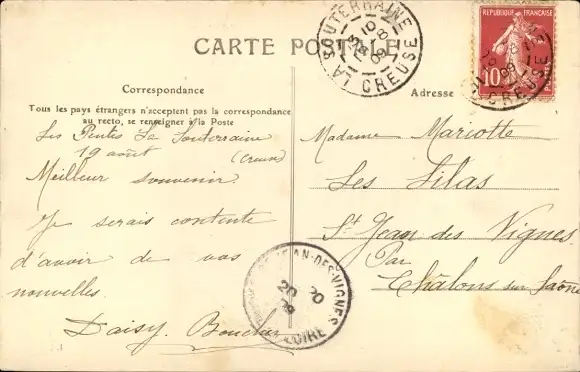 CARTE POSTALE
Correspondance
Tous les pays étrangers n'acceptent pas la correspondance
au recto, se renseigner à la Poste
Les Pentes La Souterraine
19 août (Creuse)
Meilleur souvenir.
Je serais contente
d'avoir de vos
nouvelles.
Daisy
Adresse
Madame Marcotte
Les Lilas
St Jean des Vignes
Par
Châlons sur Saône
RÉPUBLIQUE FRANÇAISE
10
POSTES
LA SOUTERRAINE
8
09
CREUSE
CREUSE
JEAN-DES-VIGNES
20
09
LOIRE